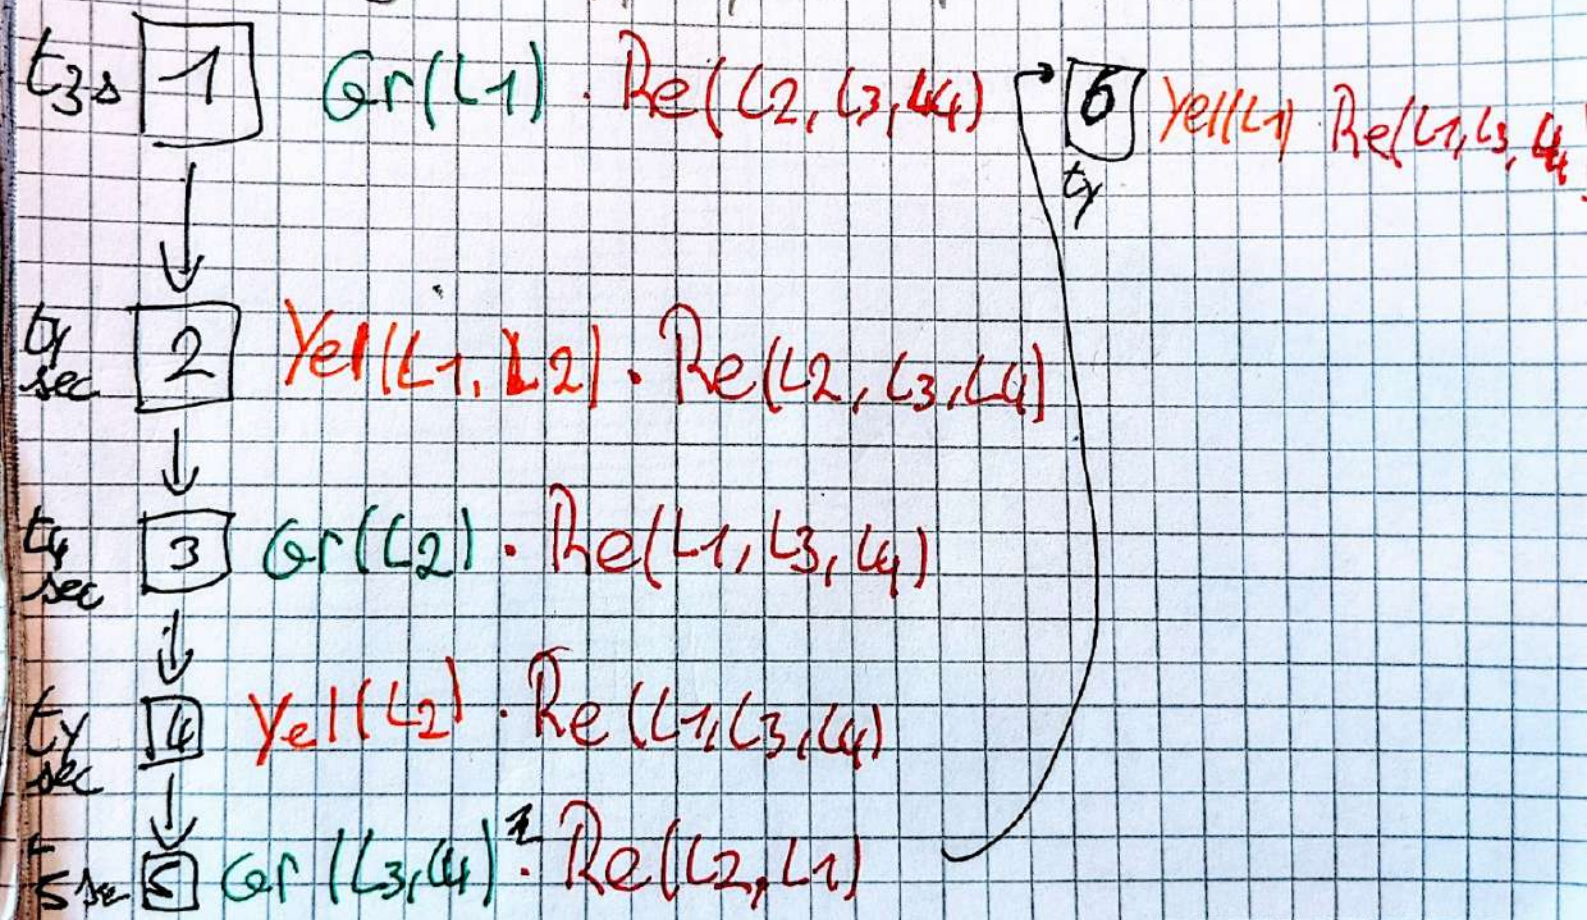 t3s 1 Gr(L1) . Re(L2, L3, L4)
6 Yel(L1) . Re(L1, L3, L4)
ty
ty sec 2 Yel(L1, L2) . Re(L2, L3, L4)
t4 sec 3 Gr(L2) . Re(L1, L3, L4)
ty sec 4 Yel(L2) . Re(L1, L3, L4)
5 Gr(L3, L4) . Re(L2, L1)